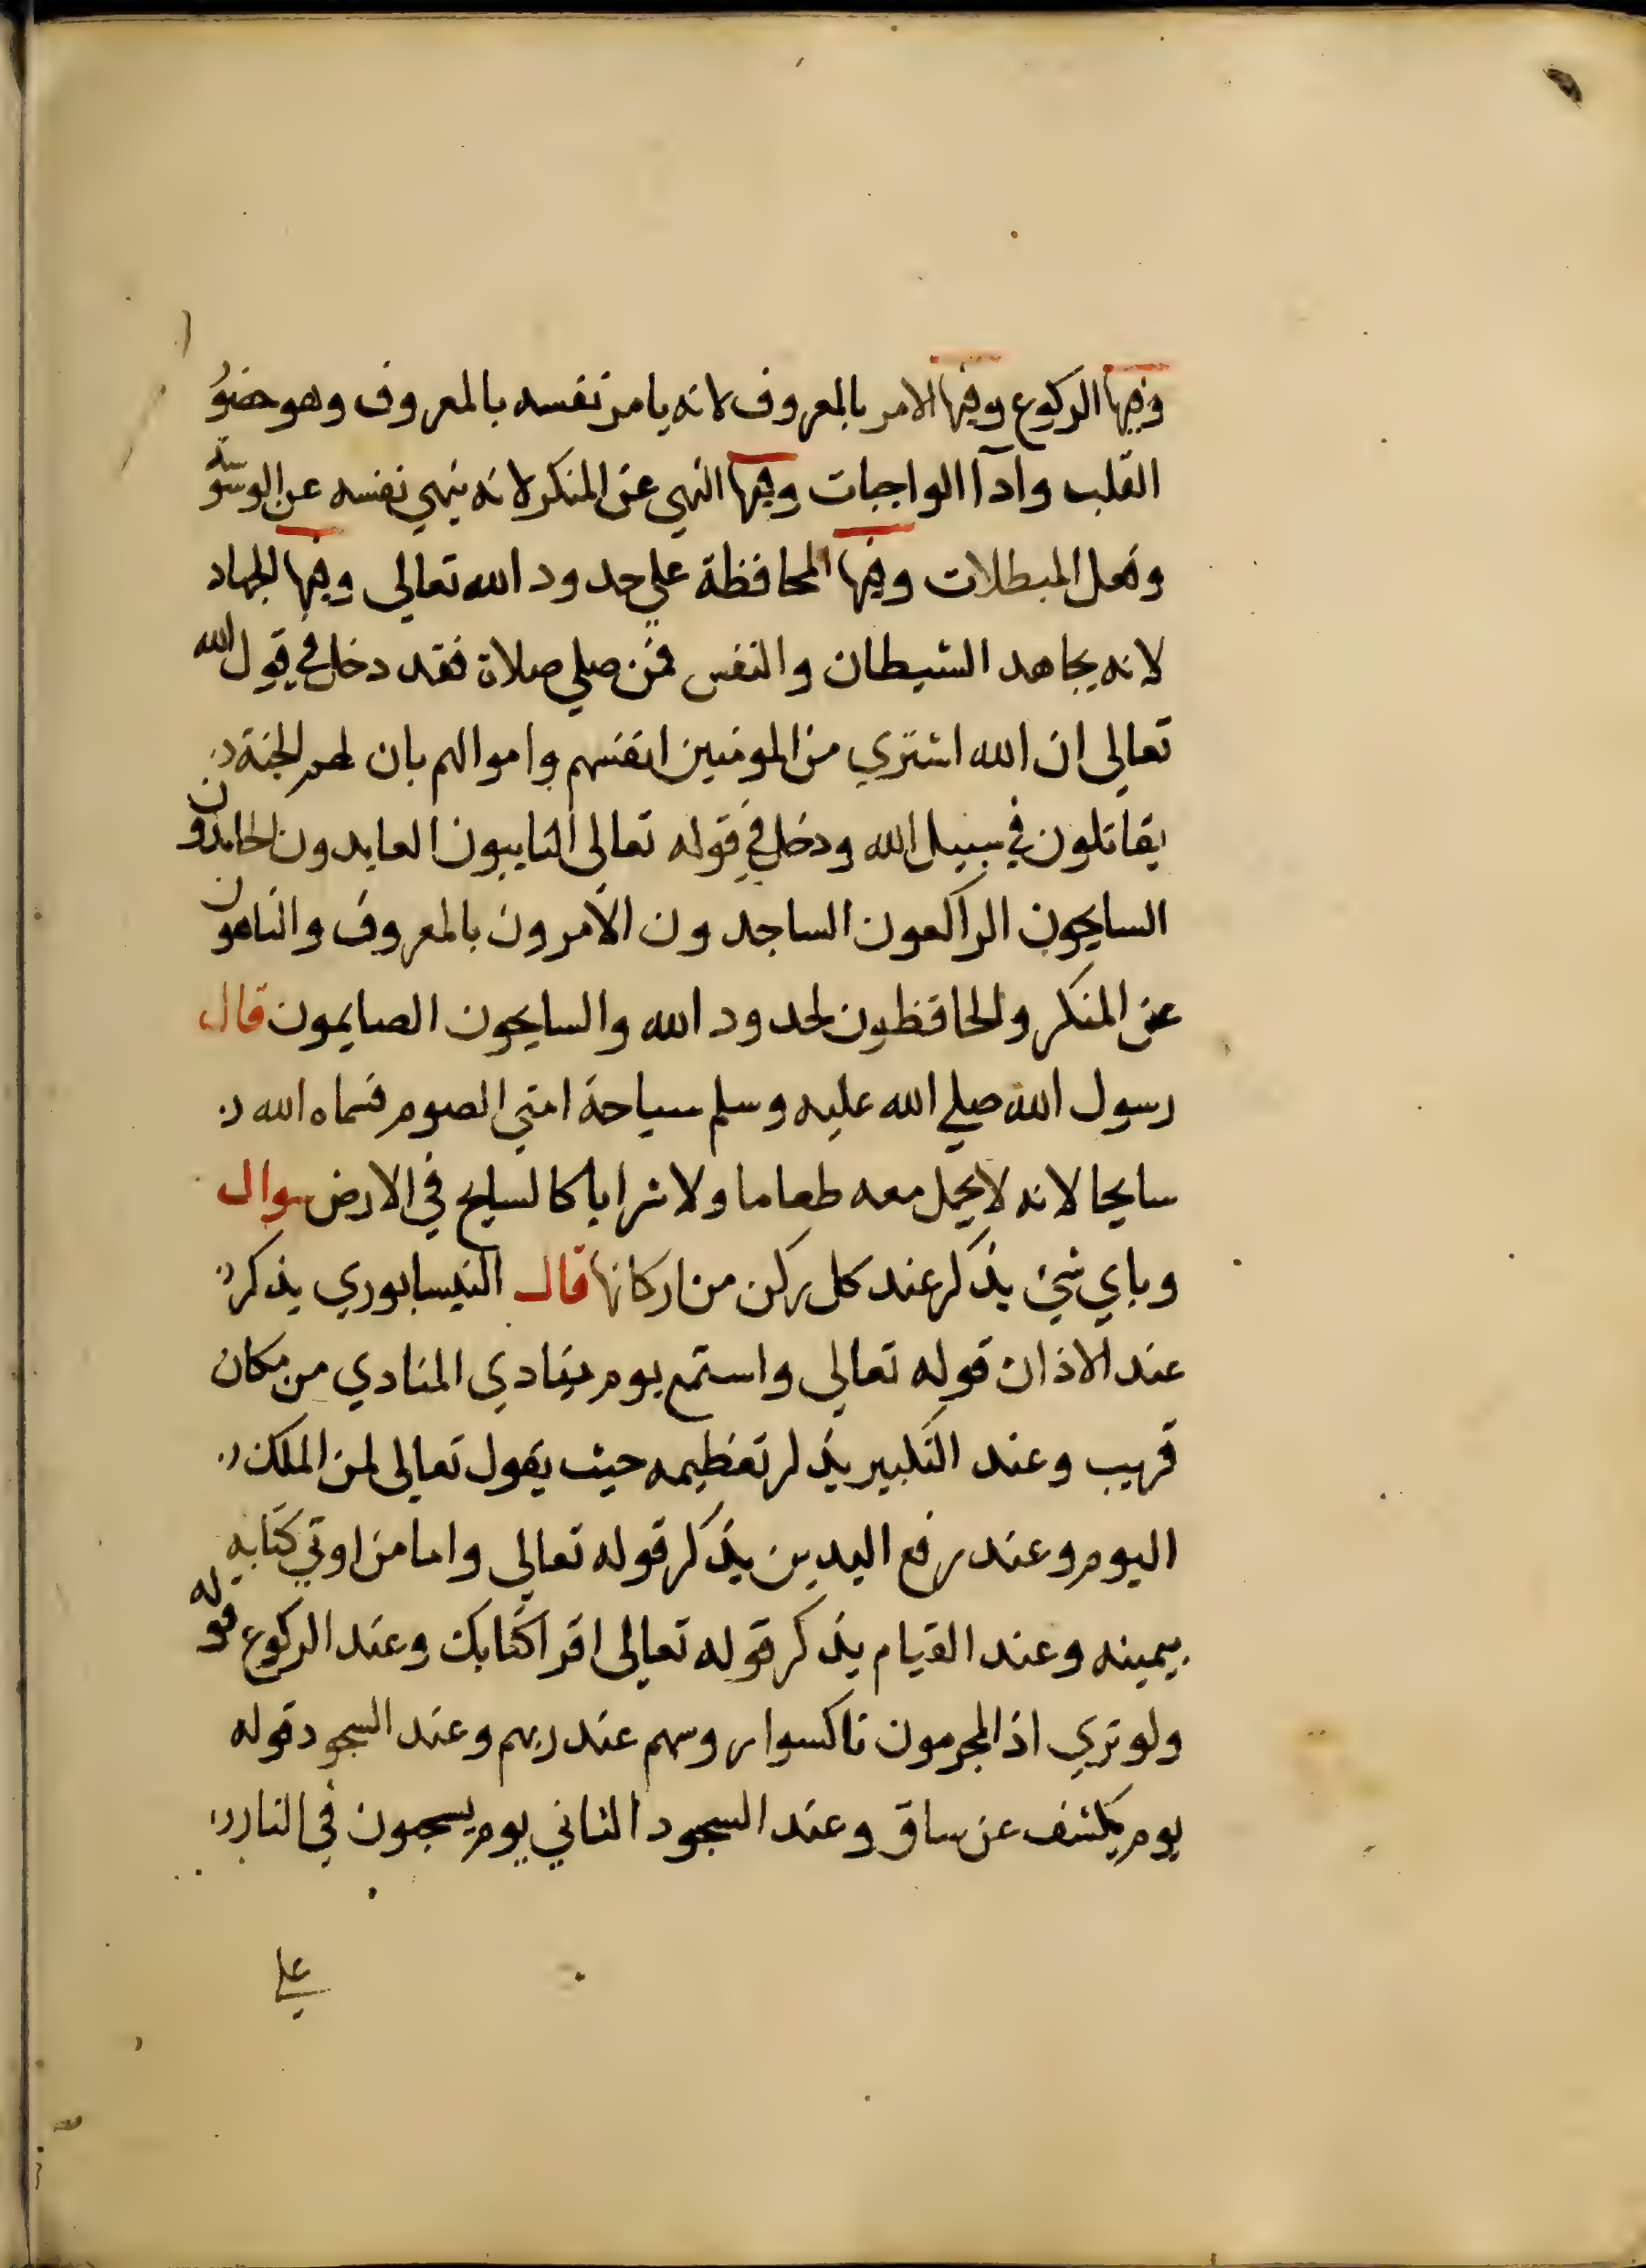 وفيها الركوع وفيها الامر بالمعروف لانه يامر نفسه بالمعروف وهو حضو
القلب وادآ الواجبات وفيها النهي عن المنكر لانه ينهي نفسه عن الوسوسة
وفعل المبطلات وفيها المحافظة علي حدود الله تعالي وفيها الجهاد
لانه يجاهد الشيطان والنفس فمن صلي صلاة فقد دخل في قول الله
تعالي ان الله اشتري من المومنين انفسهم واموالهم بان لهم الجنة
يقاتلون في سبيل الله ودخل في قوله تعالى التايبون العابدون الحامدون
السايحون الراكعون الساجدون الآمرون بالمعروف والناهون
عن المنكر والحافظون لحدود الله والسايحون الصايمون قال
رسول الله صلي الله عليه وسلم سياحة امتي الصوم فسماه الله
سايحا لانه لا يحمل معه طعاما ولا شرابا كالسايح في الارض سوال
وباي شيء يذكر عند كل ركن من اركانها قال النيسابوري يذكر
عند الاذان قوله تعالي واستمع يوم ينادي المنادي من مكان
قريب وعند التكبير يذكر تعظيمه حيث يقول تعالى لمن الملك
اليوم وعند رفع اليدين يذكر قوله تعالي واما من اوتي كتابه
بيمينه وعند القيام يذكر قوله تعالى اقرا كتابك وعند الركوع قوله
ولو تري اذ المجرمون ناكسوا روسهم عند ربهم وعند السجود قوله
يوم يكشف عن ساق وعند السجود الثاني يوم يسحبون في النار
علي